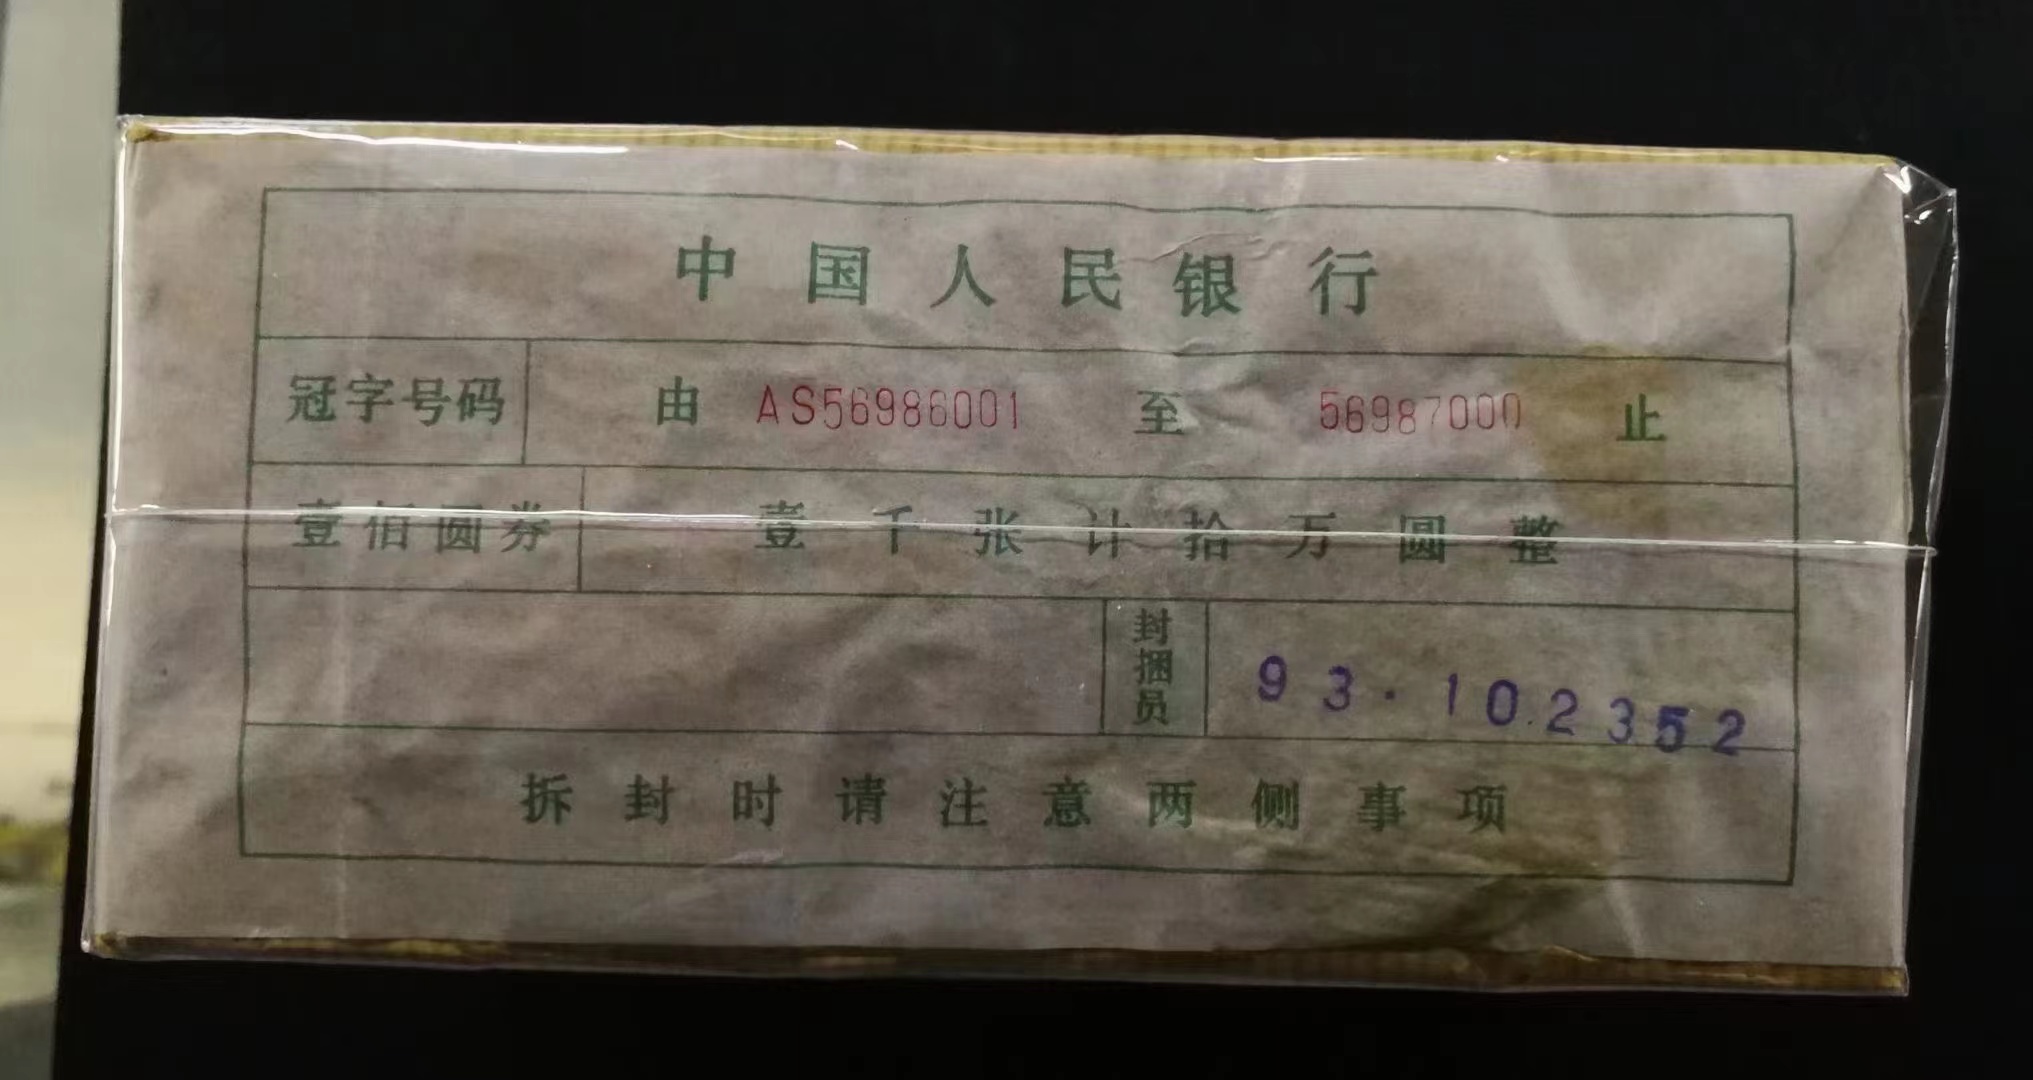 中国人民银行
冠字号码 由 AS56986001 至 56987000 止
壹佰圆券 壹千张计拾万圆整
封捆员 93.10.2352
拆封时请注意两侧事项